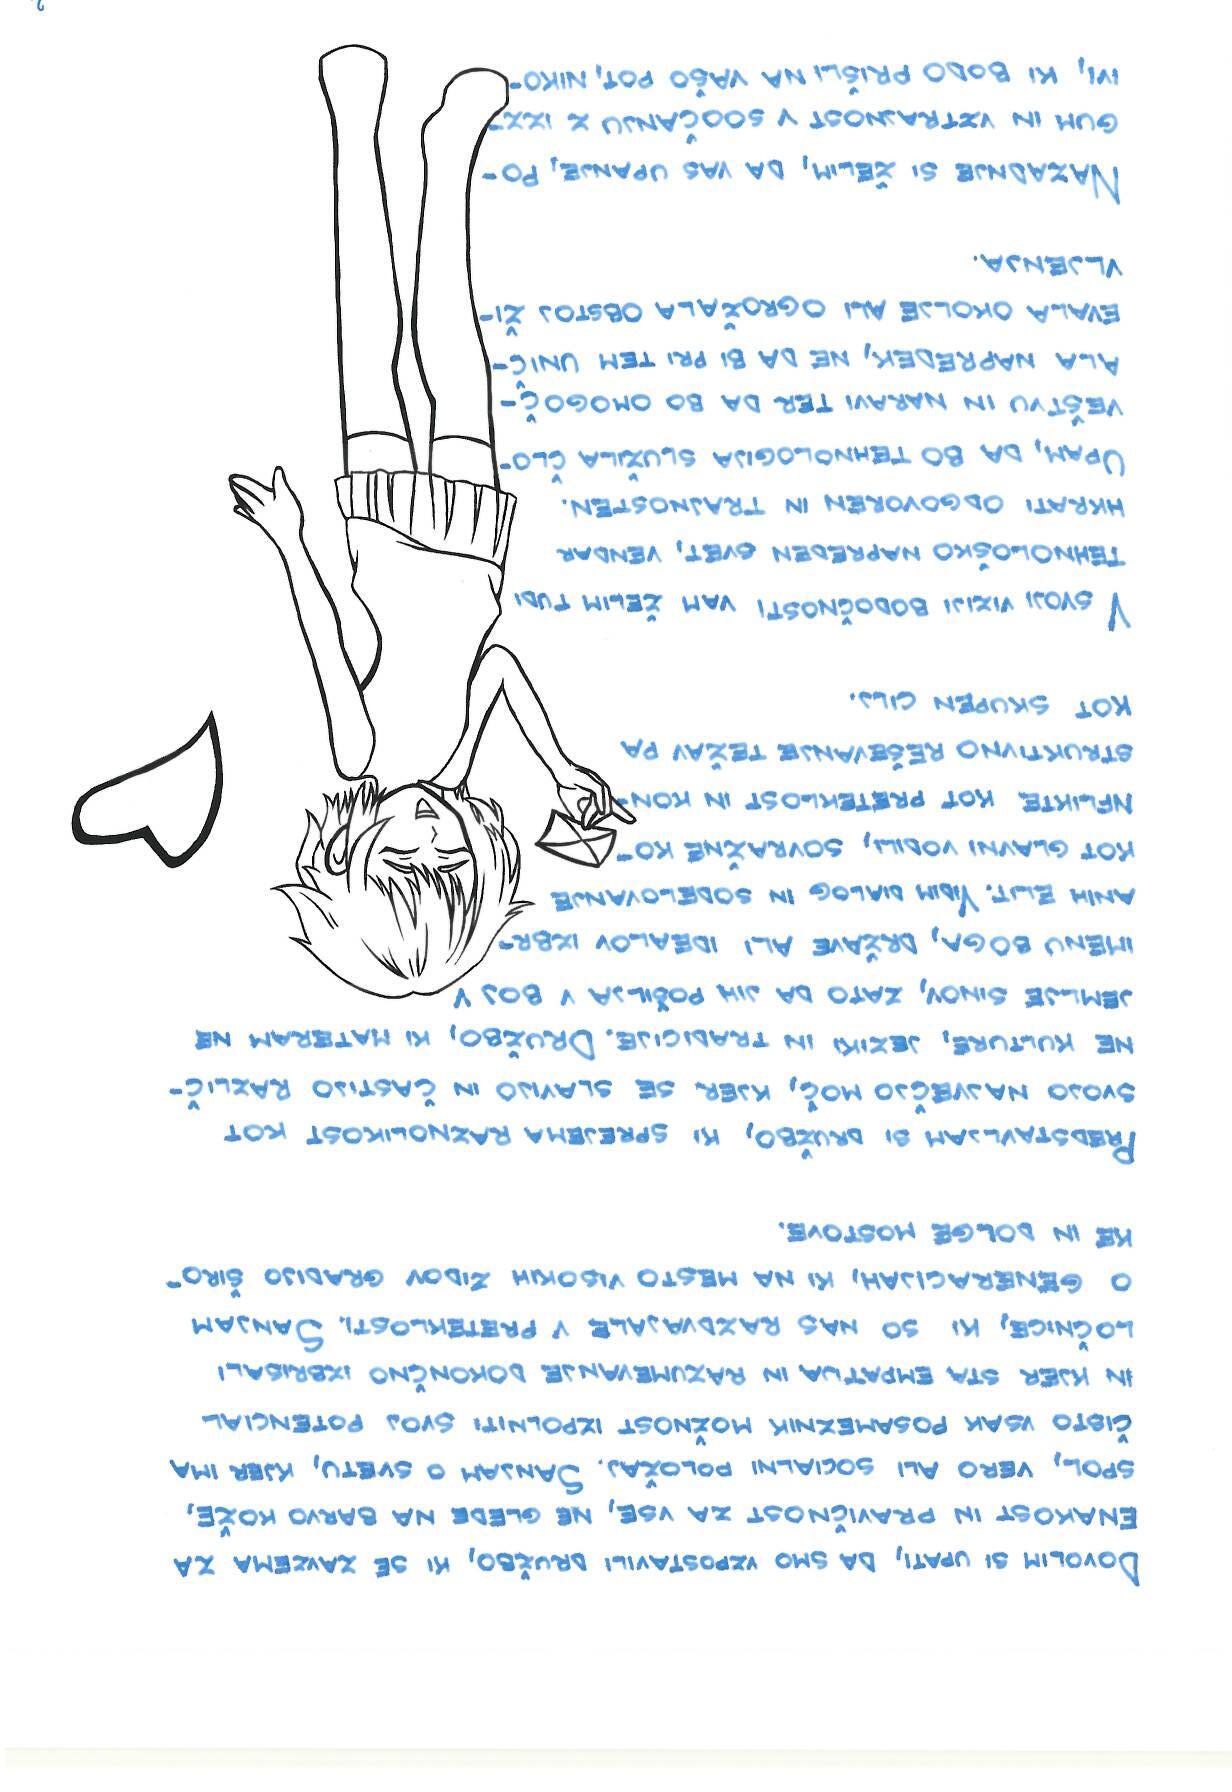 DOVOLIM SI UPATI, DA SMO VZPOSTAVILI DRUŽBO, KI SE ZAVZEMA ZA
ENAKOST IN PRAVIČNOST ZA VSE, NE GLEDE NA BARVO KOŽE,
SPOL, VERO ALI SOCIALNI POLOŽAJ. SANJAM O SVETU, KJER IMA
ČISTO VSAK POSAMEZNIK MOŽNOST IZPOLNITI SVOJ POTENCIAL
IN KJER STA EMPATIJA IN RAZUMEVANJE DOKONČNO IZBRISALI
LOČNICE, KI SO NAS RAZDVAJALE V PRETEKLOSTI. SANJAM
O GENERACIJAH, KI NA MESTO VISOKIH ZIDOV GRADIJO ŠIRO-
KE IN DOLGE MOSTOVE.
PREDSTAVLJAM SI DRUŽBO, KI SPREJEMA RAZNOLIKOST KOT
SVOJO NAJVEČJO MOČ, KJER SE SLAVIJO IN ČASTIJO RAZLIČ-
NE KULTURE, JEZIKI IN TRADICIJE. DRUŽBO, KI MATERAM NE
JEMLJE SINOV, ZATO DA JIH POŠILJA V BOJ V
IMENU BOGA, DRŽAVE ALI IDEALOV IZBR-
ANIH ELIT. VIDIM DIALOG IN SODELOVANJE
KOT GLAVNI VODILI, SOVRAŽNE KO-
NFLIKTE KOT PRETEKLOST IN KON-
STRUKTIVNO REŠEVANJE TEŽAV PA
KOT SKUPEN CILJ.
V SVOJI VIZIJI BODOČNOSTI VAM ŽELIM TUDI
TEHNOLOŠKO NAPREDEN SVET, VENDAR
HKRATI ODGOVOREN IN TRAJNOSTEN.
UPAM, DA BO TEHNOLOGIJA SLUŽILA ČLO-
VEŠTVU IN NARAVI TER DA BO OMOGOČ-
ALA NAPREDEK, NE DA BI PRI TEM UNIČ-
EVALA OKOLJE ALI OGROŽALA OBSTOJ ŽI-
VLJENJA.
NAZADNJE SI ŽELIM, DA VAS UPANJE, PO-
GUM IN VZTRAJNOST V SOOČANJU Z IZZ-
IVI, KI BODO PRIŠLI NA VAŠO POT, NIKO-
2.